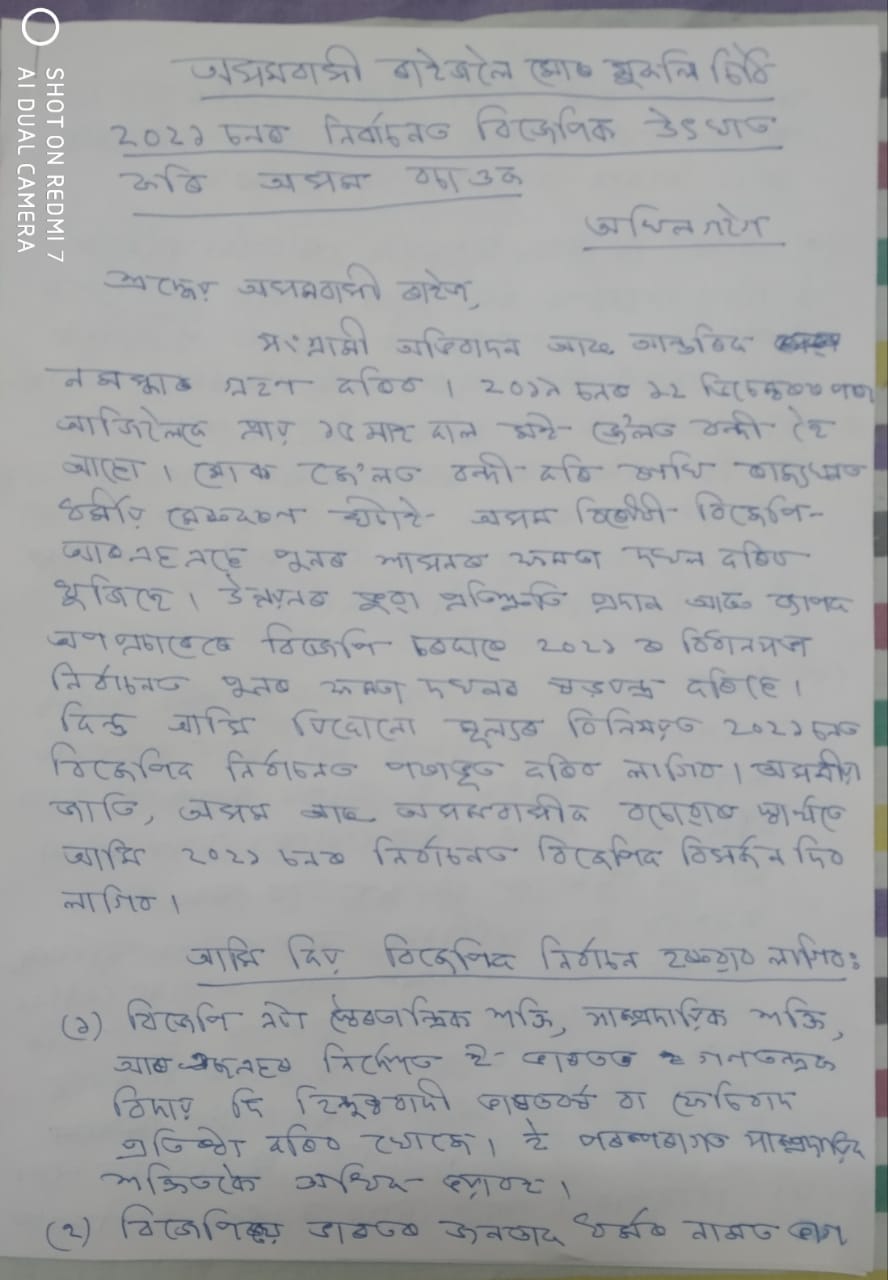 SHOT ON REDMI 7
AI DUAL CAMERA
অসমবাসী ৰাইজলৈ মোৰ মুকলি চিঠি
২০২১ চনৰ নিৰ্বাচনত বিজেপিক উৎখাত
কৰি অসম বচাওক
অখিল গগৈ
শ্ৰদ্ধেয় অসমবাসী ৰাইজ,
সংগ্ৰামী অভিবাদন আৰু আন্তৰিক
নমস্কাৰ গ্ৰহণ কৰিব । ২০১৯ চনৰ ১২ ডিচেম্বৰৰ পৰা
আজিলৈকে প্ৰায় ১৫ মাহ কাল মই জে'লত বন্দী হৈ
আছো । মোক জে'লত বন্দী কৰি ৰাখি ৰাজ্যখনত
ধৰ্মীয় মেৰুকৰণ ঘটাই অসম বিৰোধী বিজেপি-
আৰএছএছে পুনৰ শাসনৰ ক্ষমতা দখল কৰিব
খুজিছে । উন্নয়নৰ ভুৱা প্ৰতিশ্ৰুতি প্ৰদান আৰু ব্যাপক
অপপ্ৰচাৰেৰে বিজেপি চৰকাৰে ২০২১ ৰ বিধানসভা
নিৰ্বাচনত পুনৰ ক্ষমতা দখলৰ ষড়যন্ত্ৰ কৰিছে ।
কিন্তু আমি যিকোনো মূল্যৰ বিনিময়ত ২০২১ চনত
বিজেপিক নিৰ্বাচনত পৰাভূত কৰিব লাগিব । অসমীয়া
জাতি, অসম আৰু অসমবাসীক বচোৱাৰ স্বাৰ্থতে
আমি ২০২১ চনৰ নিৰ্বাচনত বিজেপিক বিসৰ্জন দিব
লাগিব ।
আমি কিয় বিজেপিক নিৰ্বাচনত হৰুৱাব লাগিবঃ
(১) বিজেপি এটা স্বৈৰতান্ত্ৰিক শক্তি, সাম্প্ৰদায়িক শক্তি,
আৰএছএছৰ নিৰ্দেশত ই ভাৰতত গণতন্ত্ৰক
বিদায় দি হিন্দুত্ববাদী ভাৰতবৰ্ষ বা ফেচিবাদ
প্ৰতিষ্ঠা কৰিব খোজে । ই পৰম্পৰাগত সাম্প্ৰদায়িক
শক্তিতকৈ অধিক ভয়াবহ ।
(২) বিজেপিয়ে ভাৰতৰ জনতাক ধৰ্মৰ নামত ভাগ